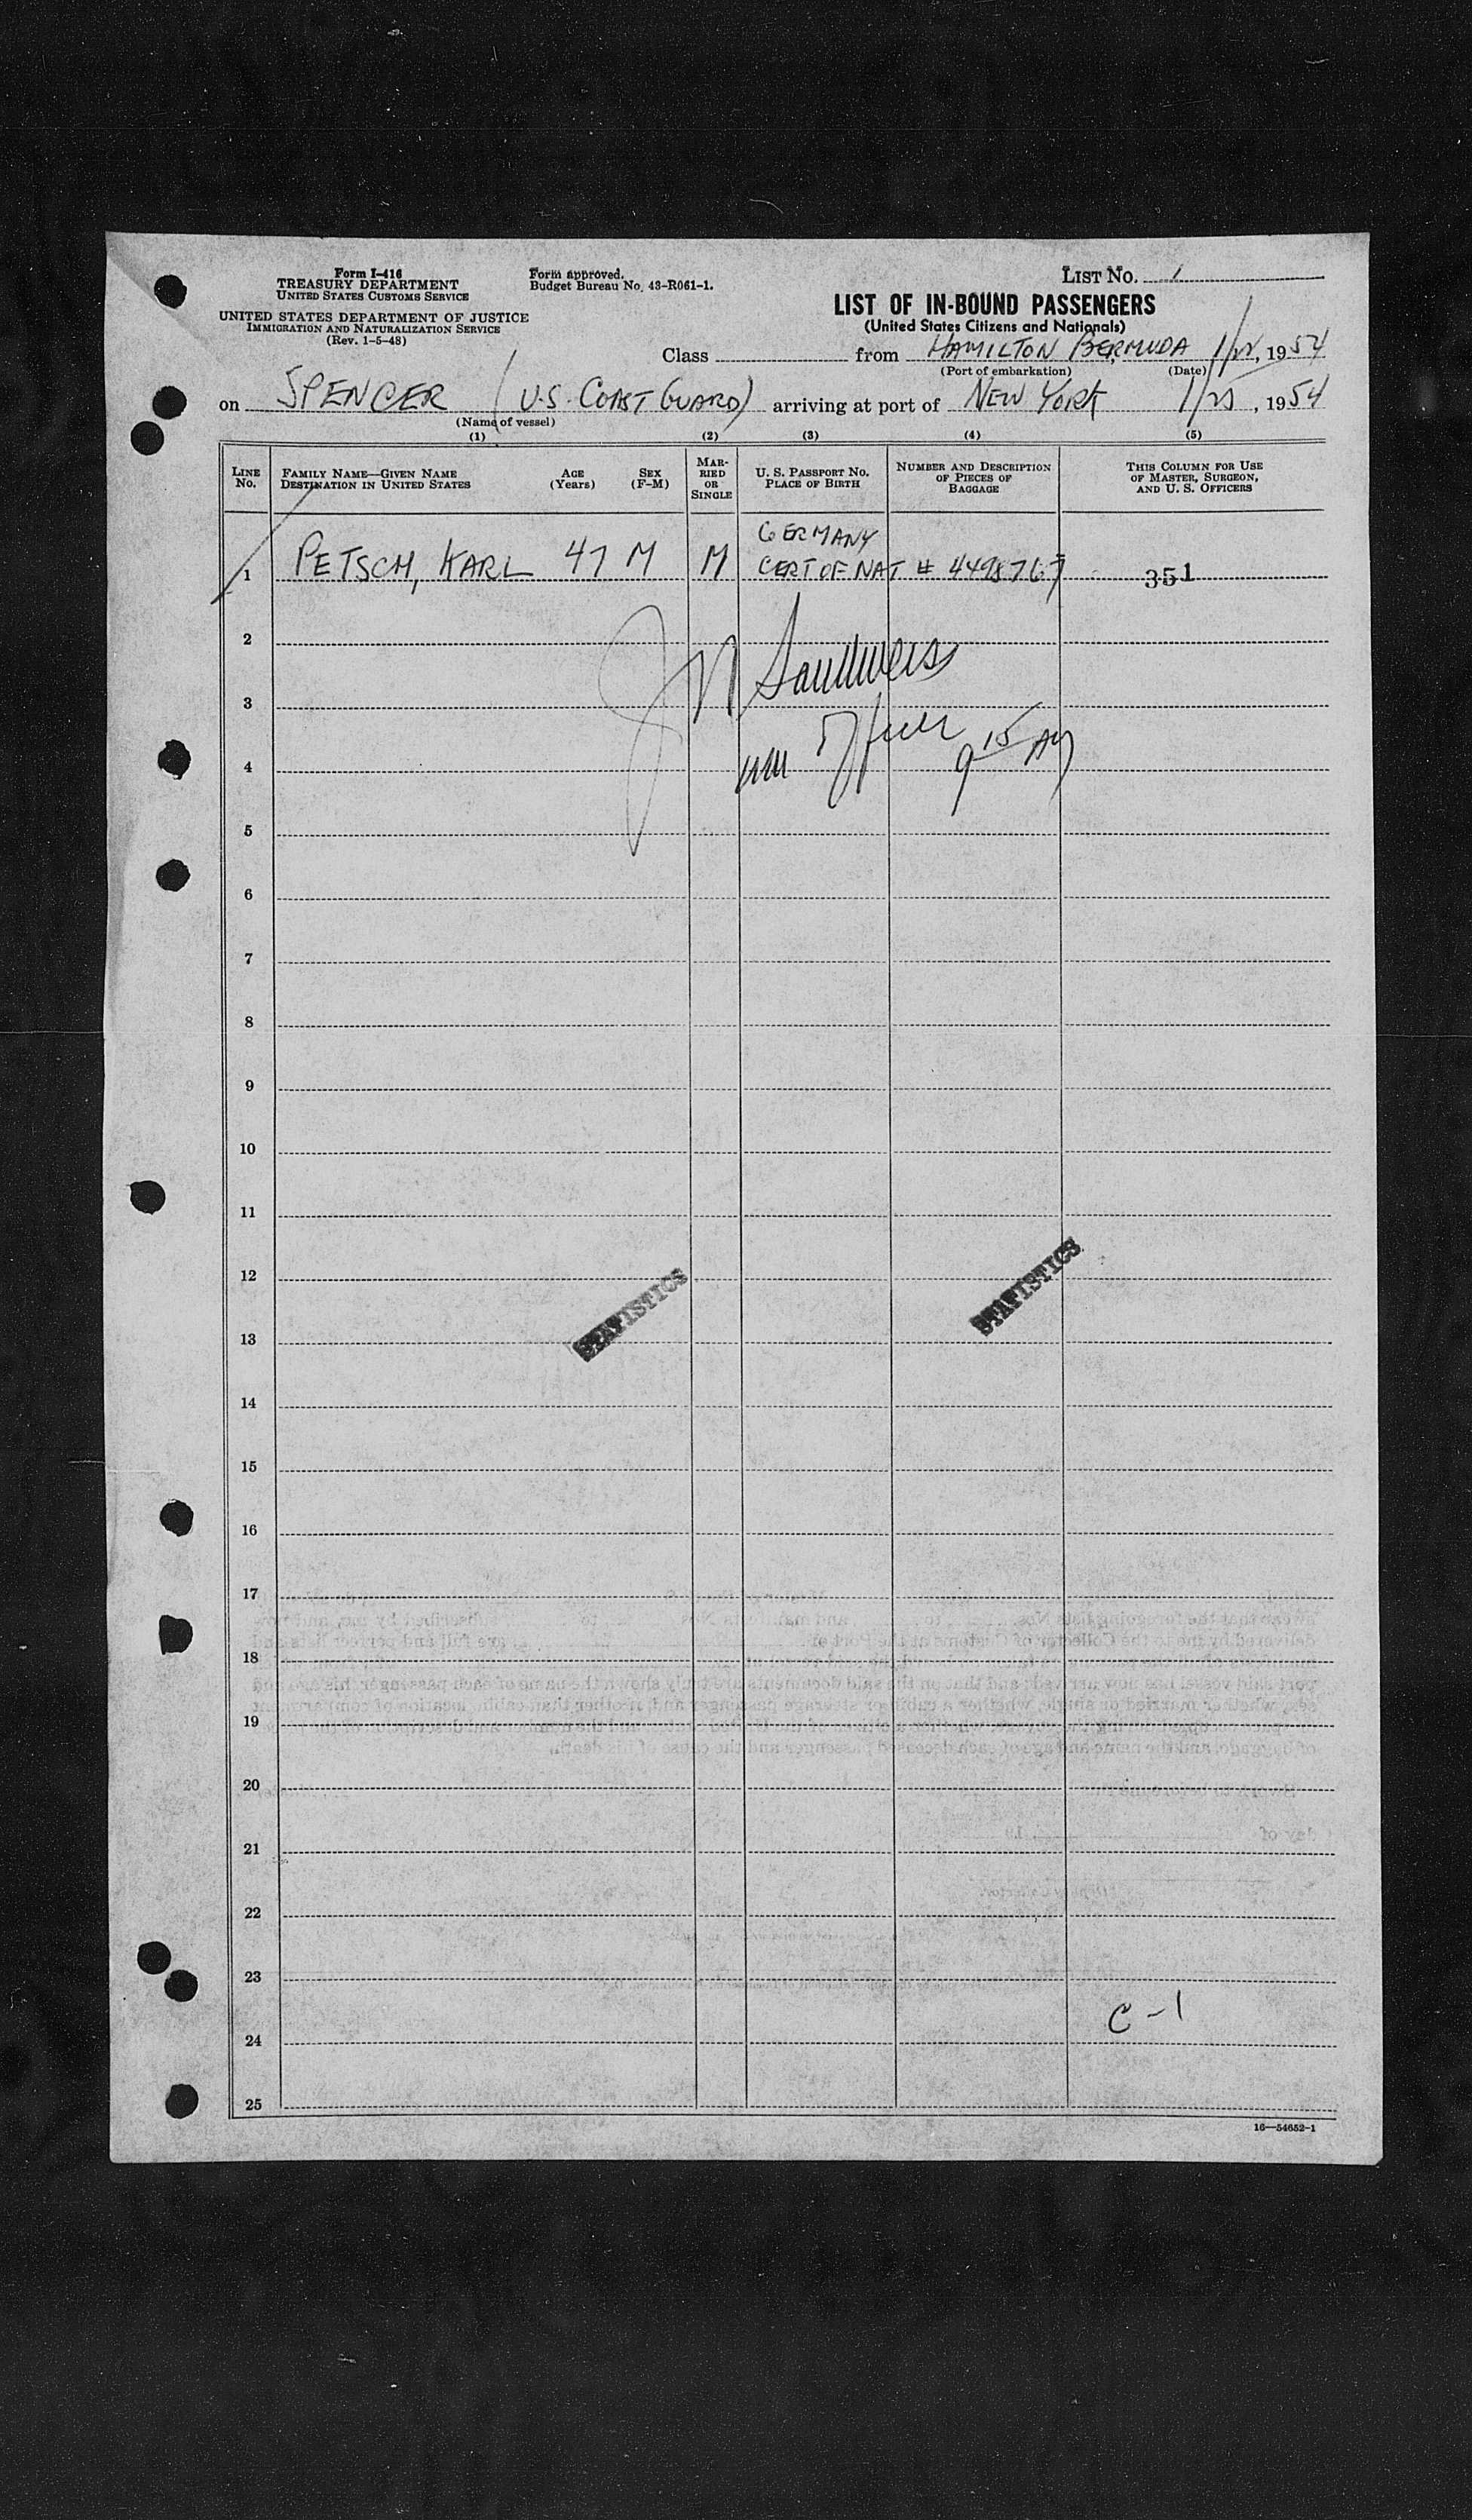 Form I-416
TREASURY DEPARTMENT
UNITED STATES CUSTOMS SERVICE
UNITED STATES DEPARTMENT OF JUSTICE
IMMIGRATION AND NATURALIZATION SERVICE
(Rev. 1-5-48)
Form approved.
Budget Bureau No. 43-R061-1.
LIST NO. 1
LIST OF IN-BOUND PASSENGERS
(United States Citizens and Nationals)
Class from HAMILTON BERMUDA 1/22, 1954
(Port of embarkation) (Date)
on SPENCER (U.S. COAST GUARD) arriving at port of NEW YORK 1/25, 1954
(Name of vessel)
(1) (2) (3) (4) (5)
LINE NO. FAMILY NAME—GIVEN NAME DESTINATION IN UNITED STATES AGE (Years) SEX (F-M) MARRIED OR SINGLE U. S. PASSPORT NO. PLACE OF BIRTH NUMBER AND DESCRIPTION OF PIECES OF BAGGAGE THIS COLUMN FOR USE OF MASTER, SURGEON, AND U. S. OFFICERS
GERMANY
1 PETSCH, KARL 47 M M CERT OF NAT # 4498767 351
2
3
4 9 15 AM
5
6
7
8
9
10
11
12
STATISTICS STATISTICS
13
14
15
16
17
18
19
20
21
22
23
C-1
24
25
16—54652-1